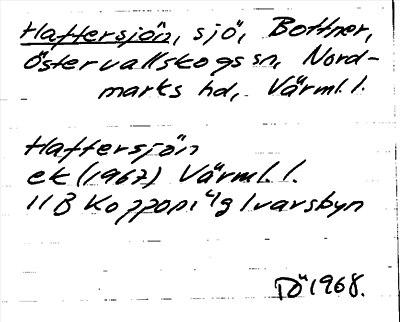 Haftersjön, sjö, Bottner,
Östervallskogs sn, Nord-
marks hd, Värml. l.
Haftersjön
ek (1967) Värml. l.
11B Koppom 4g Ivarsbyn
DÖ 1968.